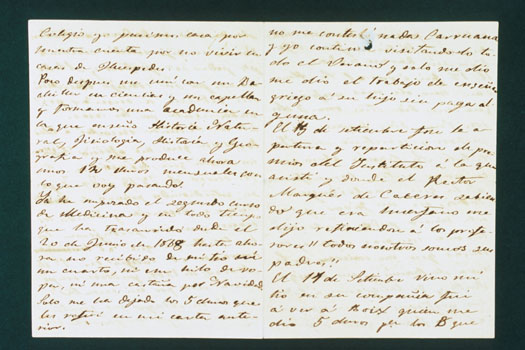 Colegio yo pusimos casa por
nuestra cuenta por no vivir en
casas de Huespedes.
Poco despues me uní con un Ba
chiller en ciencias y un capellan
y formamos una academia en
la que enseño Historia Natu
ral, Fisiologia, Historia y Geo
grafia y me produce ahora
unos 12 duros mensuales con
lo que voy pasando
Ya ha empezado el segundo curso
de Medicina y en todo tiempo
que ha trascurrido desde el
20 de Junio de 1868 hasta aho
ra no recibido de mi tio ni
un cuarto, ni un hilo de ro
pa, ni una castaña por Navidad
Solo me ha dejado los 5 duros que
les referí en mi carta ante
rior.
no me contestó nadas Carruana
y yo continué visitandolo to
do el Verano y solo me dio
me dio el trabajo de enseñar
griego a su hijo sin paga al
guna.
El de setiembre fue la a
pertura y reparticion de pre
mios del Instituto á la que
asistí y donde el Rector
Marqués de Caceres sabien
do que era huerfano me
dijo refiriendose á los profe
sores "todos nosotros somos sus
padres"
El 14 de Setiembre vino mi
tio en su compañia fui
á ver á Roix quien me
dio 5 duros por los B que